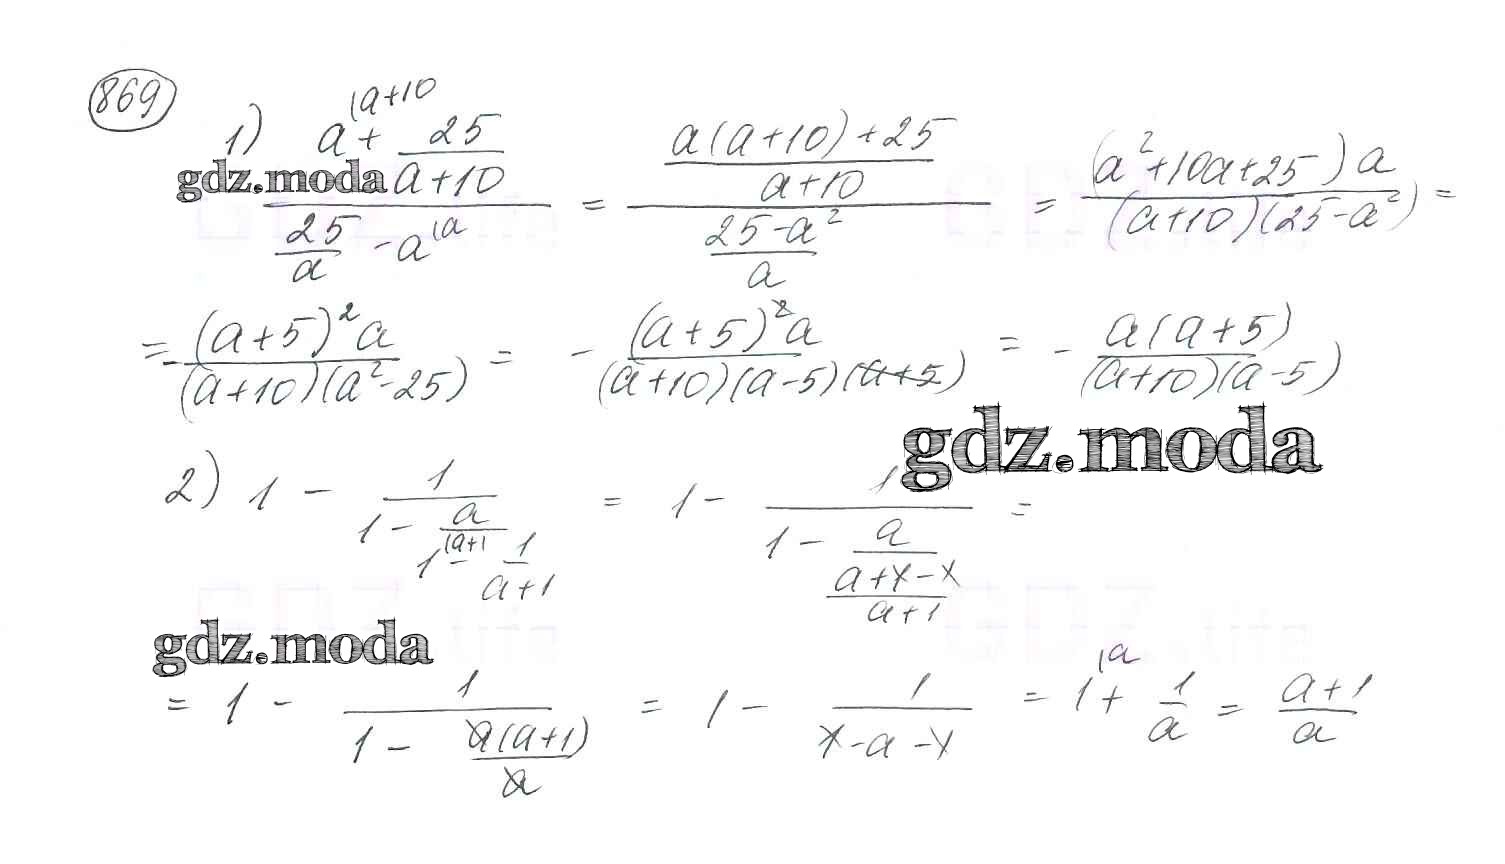 869
1) (a + 25/(a+10)) / (25/a - a) = ((a(a+10)+25)/(a+10)) / ((25-a²)/a) = (a²+10a+25)a / (a+10)(25-a²) =
gdz.moda
= - (a+5)²a / (a+10)(a²-25) = - (a+5)²a / (a+10)(a-5)(a+5) = - a(a+5) / (a+10)(a-5)
gdz.moda
2) 1 - 1/(1 - a/(1 - 1/(a+1))) = 1 - 1/(1 - a/((a+1-1)/(a+1))) =
gdz.moda
= 1 - 1/(1 - a(a+1)/a) = 1 - 1/(1-a-1) = 1 + 1/a = (a+1)/a